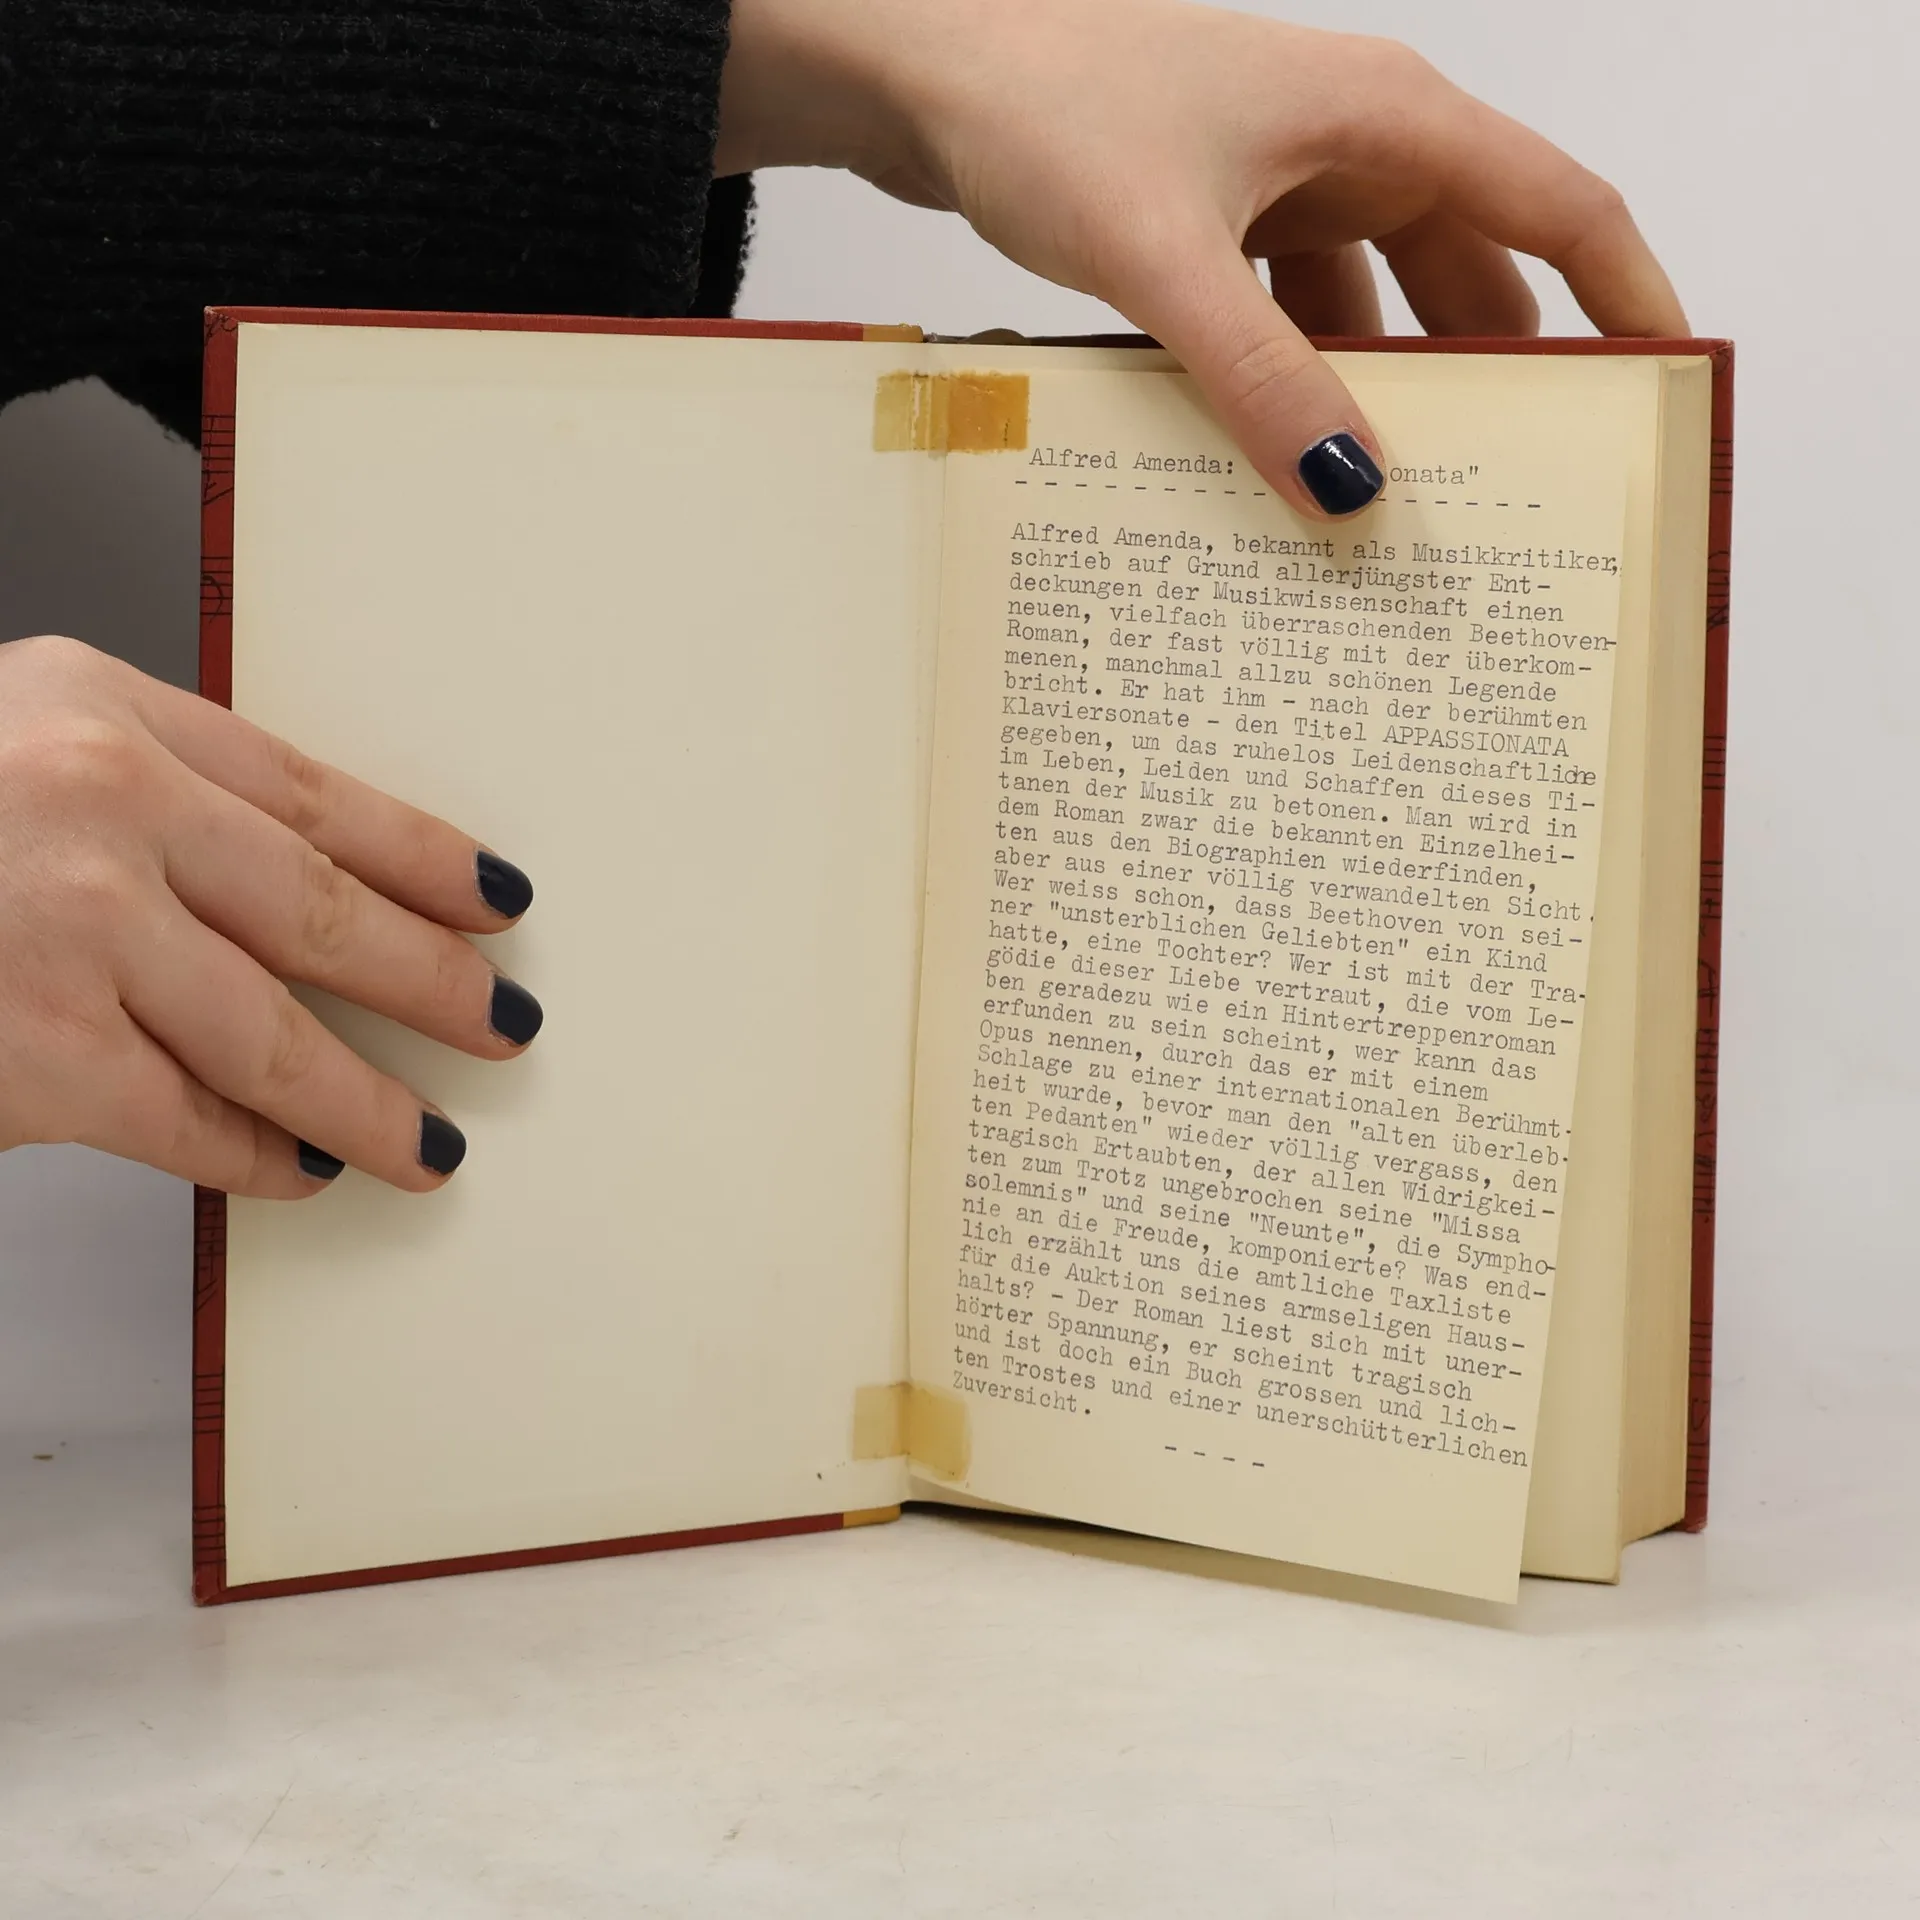 Alfred Amenda: onata"
- - - - - - - - - - - - - - -
Alfred Amenda, bekannt als Musikkritiker,
schrieb auf Grund allerjüngster Ent-
deckungen der Musikwissenschaft einen
neuen, vielfach überraschenden Beethoven-
Roman, der fast völlig mit der überkom-
menen, manchmal allzu schönen Legende
bricht. Er hat ihm - nach der berühmten
Klaviersonate - den Titel APPASSIONATA
gegeben, um das ruhelos Leidenschaftliche
im Leben, Leiden und Schaffen dieses Ti-
tanen der Musik zu betonen. Man wird in
dem Roman zwar die bekannten Einzelhei-
ten aus den Biographien wiederfinden,
aber aus einer völlig verwandelten Sicht.
Wer weiss schon, dass Beethoven von sei-
ner "unsterblichen Geliebten" ein Kind
hatte, eine Tochter? Wer ist mit der Tra-
gödie dieser Liebe vertraut, die vom Le-
ben geradezu wie ein Hintertreppenroman
erfunden zu sein scheint, wer kann das
Opus nennen, durch das er mit einem
Schlage zu einer internationalen Berühmt-
heit wurde, bevor man den "alten überleb-
ten Pedanten" wieder völlig vergass, den
tragisch Ertaubten, der allen Widrigkei-
ten zum Trotz ungebrochen seine "Missa
solemnis" und seine "Neunte", die Sympho-
nie an die Freude, komponierte? Was end-
lich erzählt uns die amtliche Taxliste
für die Auktion seines armseligen Haus-
halts? - Der Roman liest sich mit uner-
hörter Spannung, er scheint tragisch
und ist doch ein Buch grossen und lich-
ten Trostes und einer unerschütterlichen
Zuversicht.
- - - -